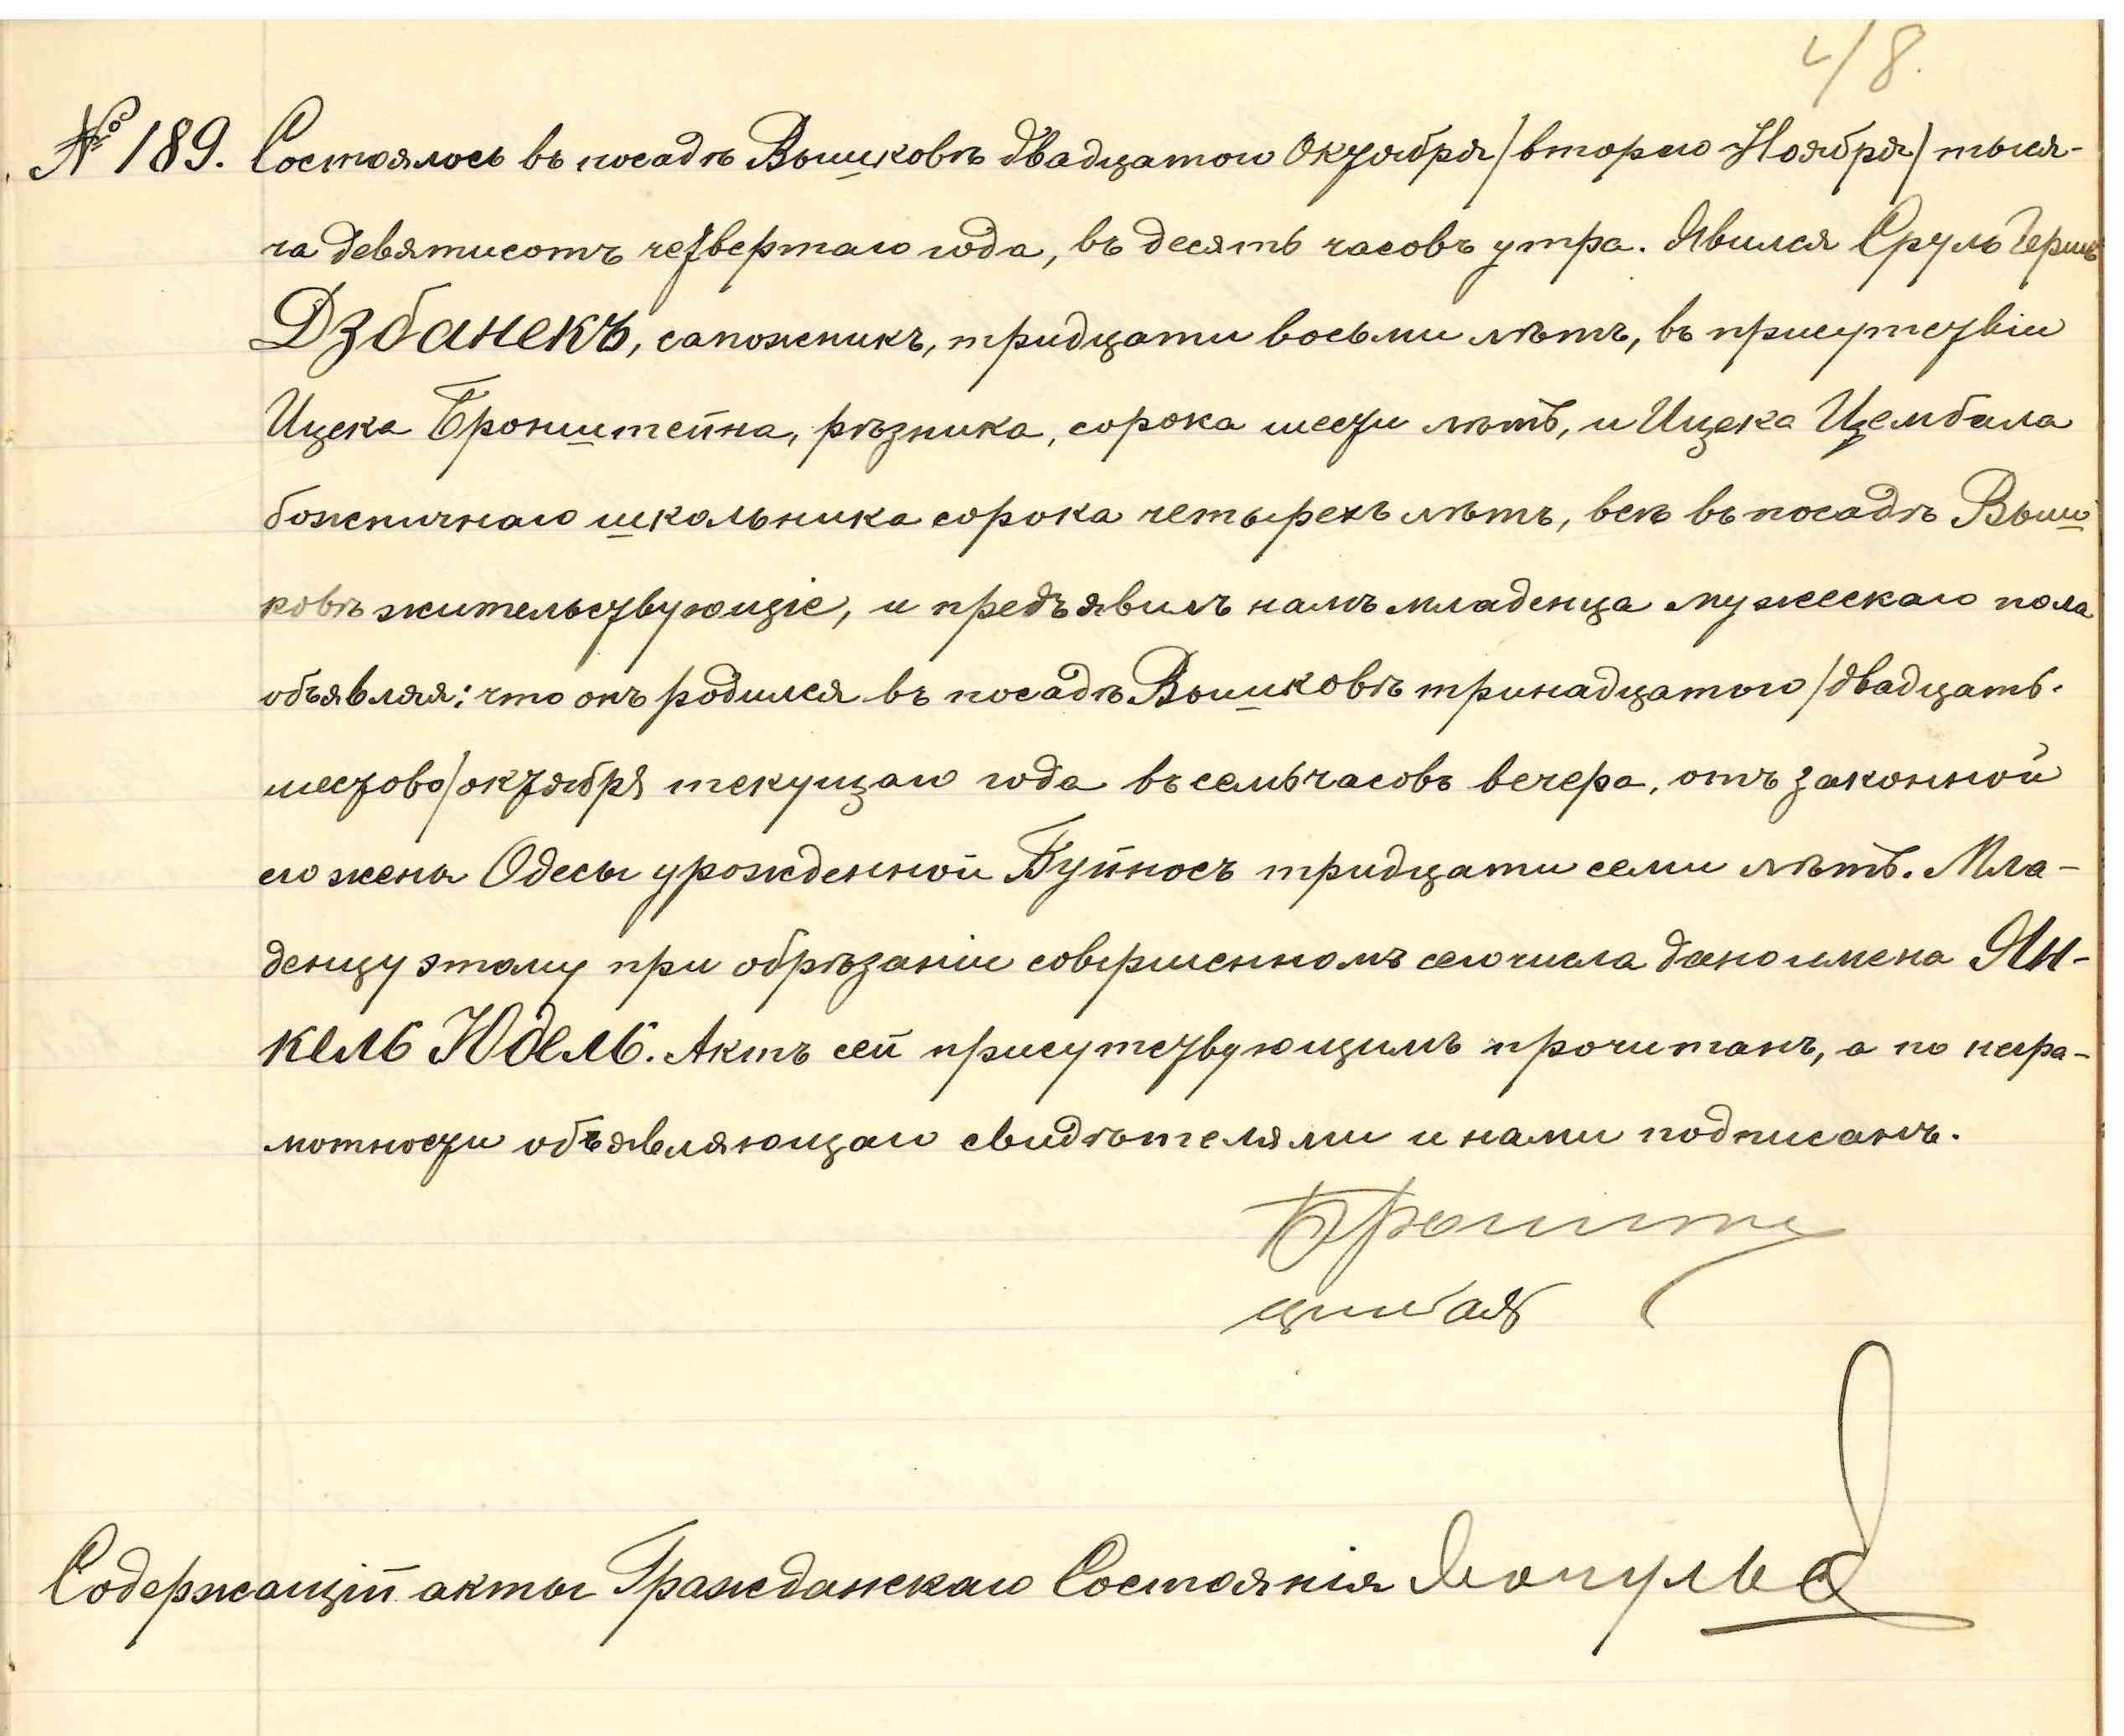 4/8.
№ 189. Состоялось въ посадѣ Вышковѣ двадцатого Октября/второго Ноября/тыся-
ча девятисотъ четвертаго года, въ десять часовъ утра. Явился Сруль Герш
Дзбанекъ, сапожникъ, тридцати восьми лѣтъ, въ присутствіи
Ицека Бронштейна, рѣзника, сорока шести лѣтъ, и Ицека Цембала
божничнаго школьника сорока четырехъ лѣтъ, всѣ въ посадѣ Выш
ковѣ жительствующіе, и предъявилъ намъ младенца мужескаго пола
объявляя: что онъ родился въ посадѣ Вышковѣ тринадцатого/двадцать.
шестово/октября текущаго года въ семь часовъ вечера, отъ законной
его жены Одесы урожденной Буйносъ тридцати семи лѣтъ. Мла-
денцу этому при обрѣзаніи совершенномъ сего числа дано имена Ян-
кель Юдель. Актъ сей присутствующимъ прочитанъ, а по негра-
мотности объявляющаго свидѣтелями и нами подписанъ.
Содержащій акты Гражданскаго Состоянія